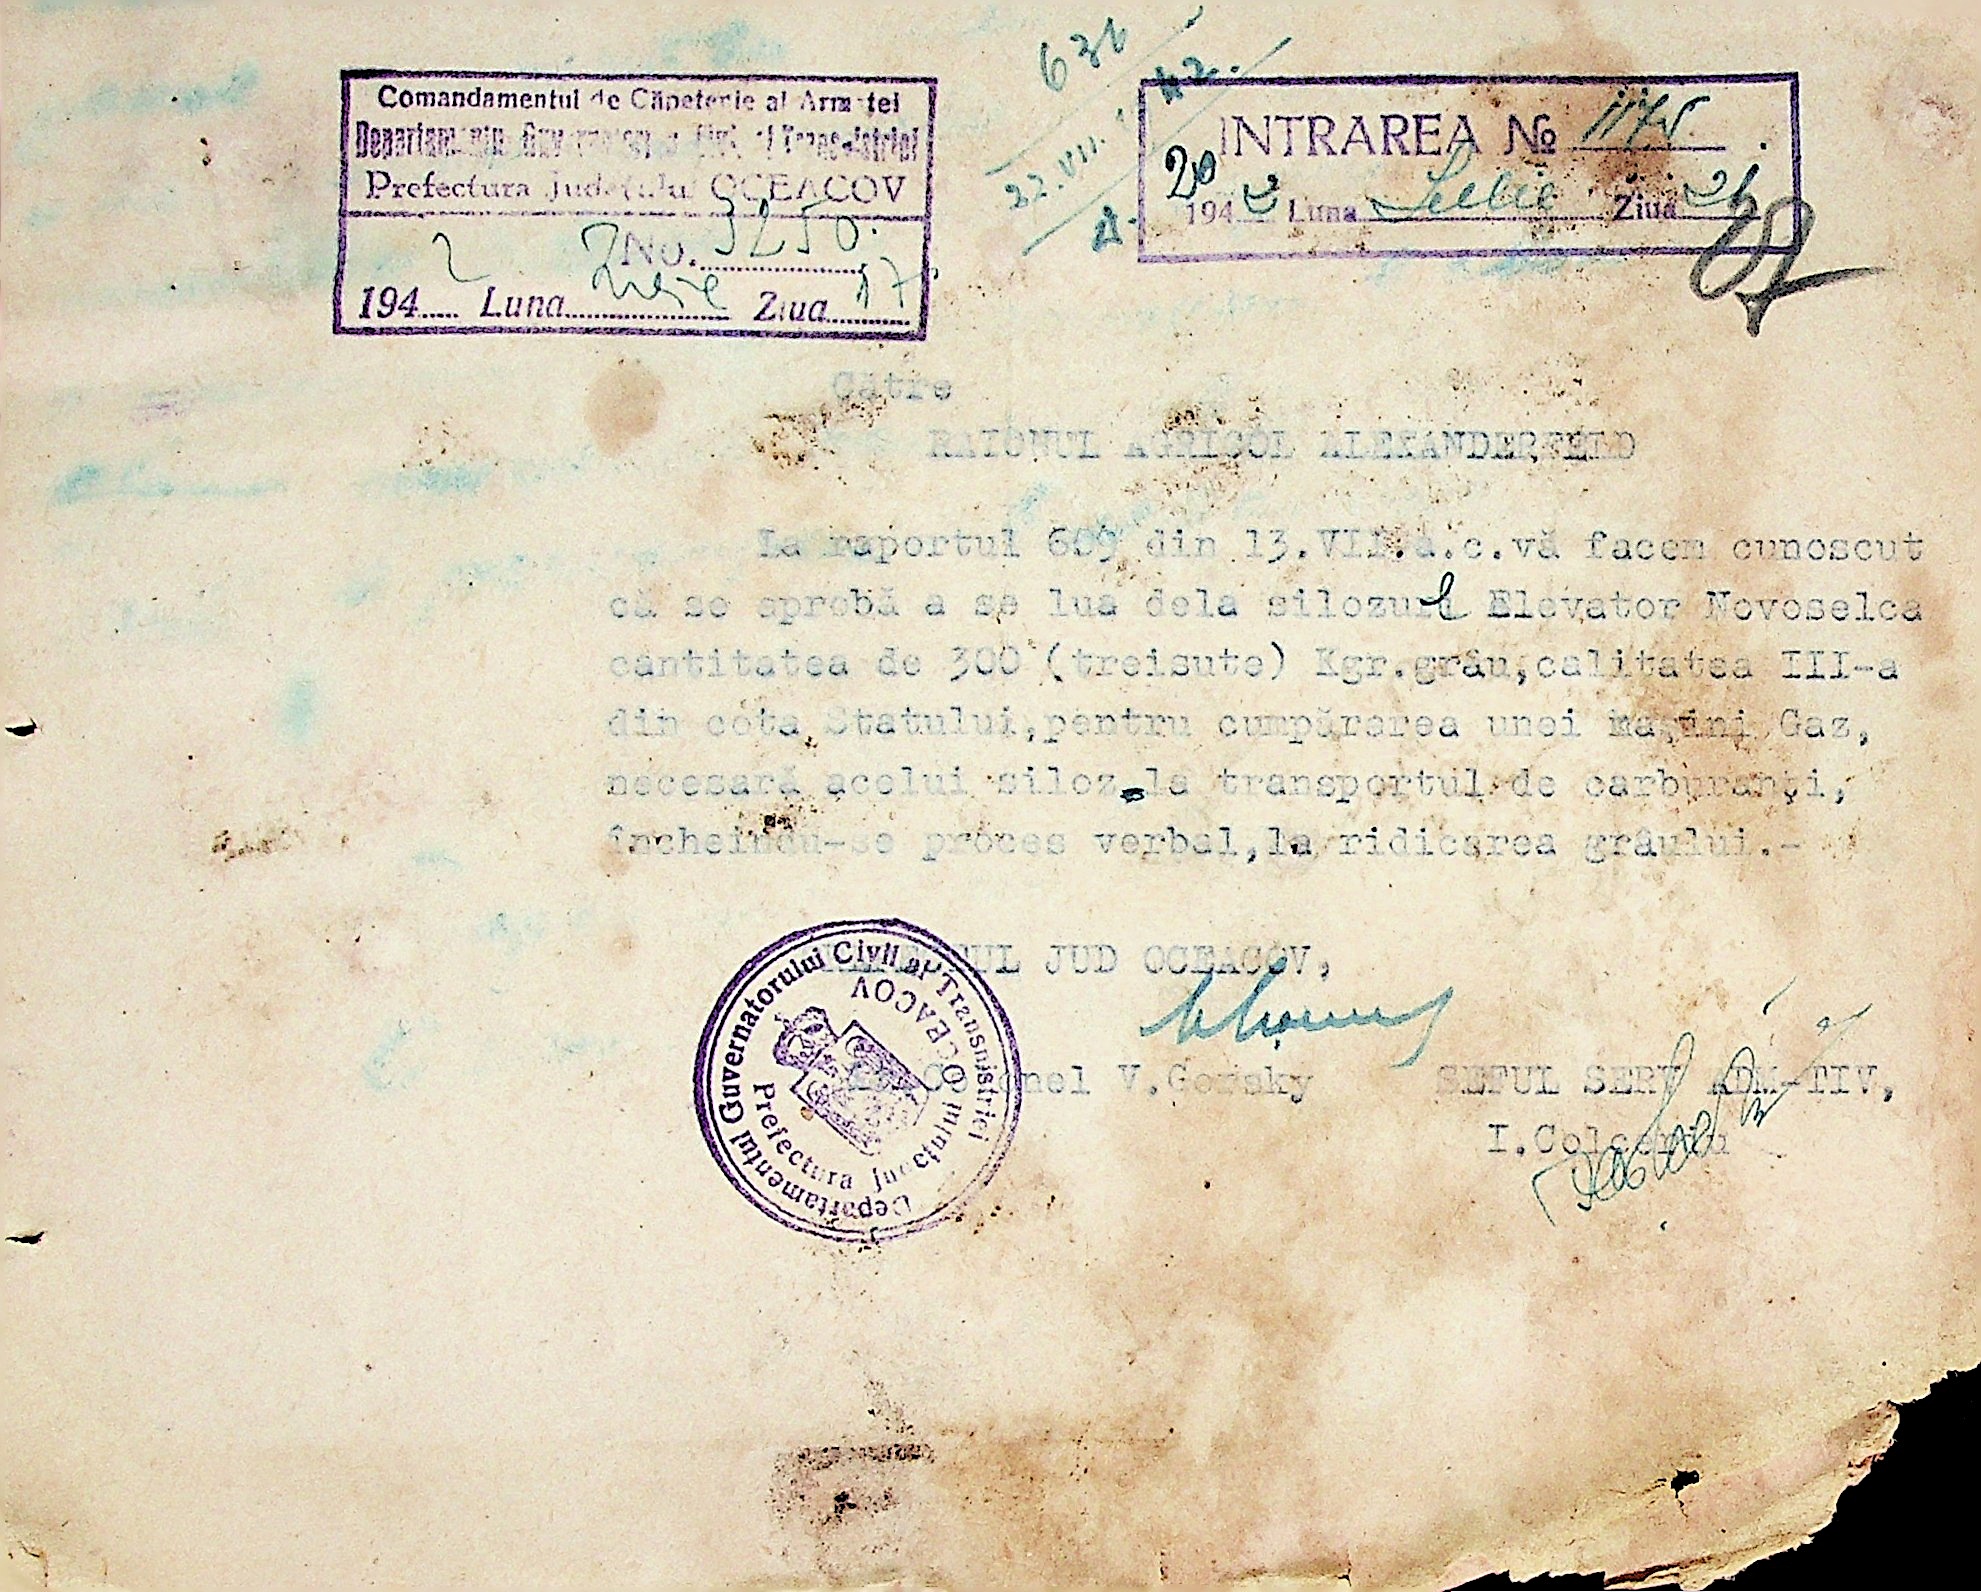 Comandamentul de Căpeterie al Armatei
Departamentul Guvernatorului Civil al Transnistriei
Prefectura Județului OCEACOV
No. 5250.
1942 Luna Iulie Ziua 17.
631
22.VII.
INTRAREA № 1175
20
1942 Luna Iulie Ziua
Către
RAIONUL AGRICOL ALEXANDERFELD
La raportul 609 din 13.VII.a.c.vă facem cunoscut
că se aprobă a se lua dela silozul Elevator Novoselca
cantitatea de 300 (treisute) Kgr.grâu,calitatea III-a
din cota Statului,pentru cumpărarea unei mașini Gaz,
necesară acelui siloz la transportul de carburanți,
încheindu-se proces verbal,la ridicarea grâului.-
PREFECTUL JUD OCEACOV,
Colonel V.Gorsky
SEFUL SERV ADM-TIV,
I.
Departamentul Guvernatorului Civil al Transnistriei
Prefectura Județului OCEACOV